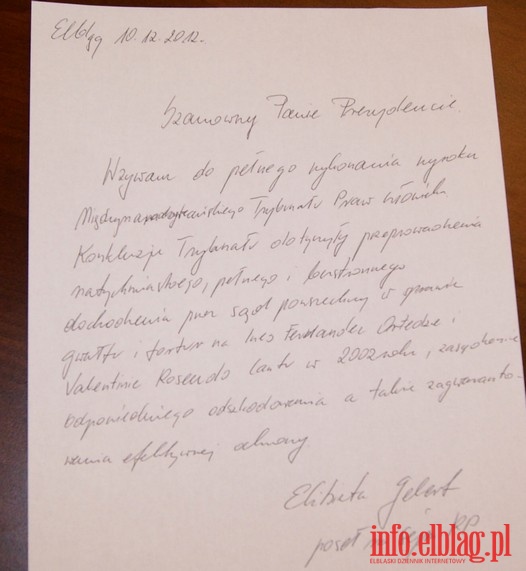 Elbląg 10.12.2012.
Szanowny Panie Prezydencie.
Wzywam do pełnego wykonania wyroku
Trybunału Praw Człowieka
Konkluzje Trybunału dotyczyły przeprowadzenia
natychmiastowego, pełnego i bezstronnego
dochodzenia przez sąd powszechny w sprawie
gwałtu i tortur na Ines Fernandez Ortedze i
Valentinie Rosendo Cantu w 2002 roku, zasądzenie
odpowiedniego odszkodowania a także zagwaranto-
wania efektywnej ochrony
Elżbieta Gelert
poseł na Sejm RP
info.elblag.pl
ELBLĄSKI DZIENNIK INTERNETOWY